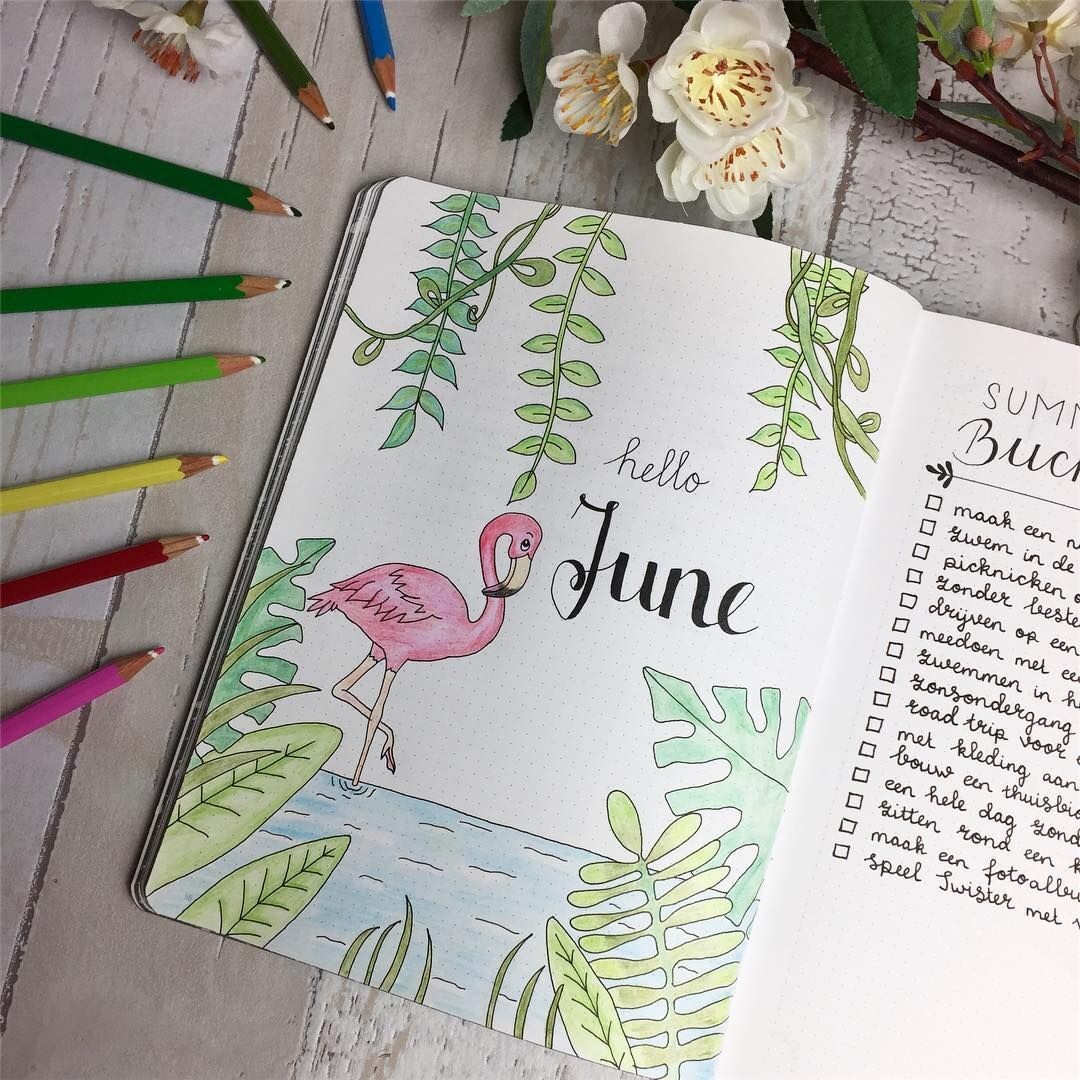 hello
June
SUMM
Buc
maak een
zwem in de
picknicken
zonder beste
drijven op een
meedoen met ee
zwemmen in h
zonsondergang
road trip voor
met kleding aan
bouw een thuisbi
een hele dag zond
zitten rond een k
maak een fotoalbu
speel Twister met